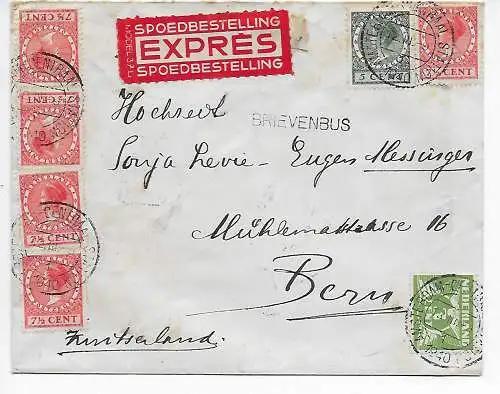 SPOEDBESTELLING
EXPRÈS
SPOEDBESTELLING
7½ CENT
7½ CENT
7½ CENT
7½ CENT
5 CENT
CENT
NEDERLAND
BRIEVENBUS
Hochzeit
Sonja Levie - Eugen Messinger
Mühlemattstrasse 16
Bern
Zwitserland.